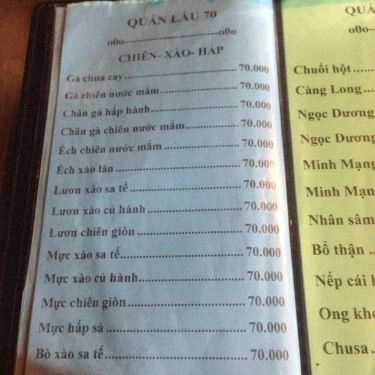 QUÁN LẨU 70
o0o------------------------------o0o
CHIÊN- XÀO- HẤP
Gà chua cay..............................70.000
Gà chiên nước mắm..............................70.000
Chân gà hấp hành..............................70.000
Chân gà chiên nước mắm..............................70.000
Ếch chiên nước mắm..............................70.000
Ếch xào lăn..............................70.000
Lươn xào sa tế..............................70.000
Lươn xào củ hành..............................70.000
Lươn chiên giòn..............................70.000
Mực xào sa tế..............................70.000
Mực xào củ hành..............................70.000
Mực chiên giòn..............................70.000
Mực hấp sả..............................70.000
Bò xào sa tế..............................70.000
QUÁ
o0o--
Chuối hột
Càng Long
Ngọc Dương
Ngọc Dương
Minh Mạng
Minh Mạn
Nhân sâm
Bổ thận
Nếp cái h
Ong kho
Chusa